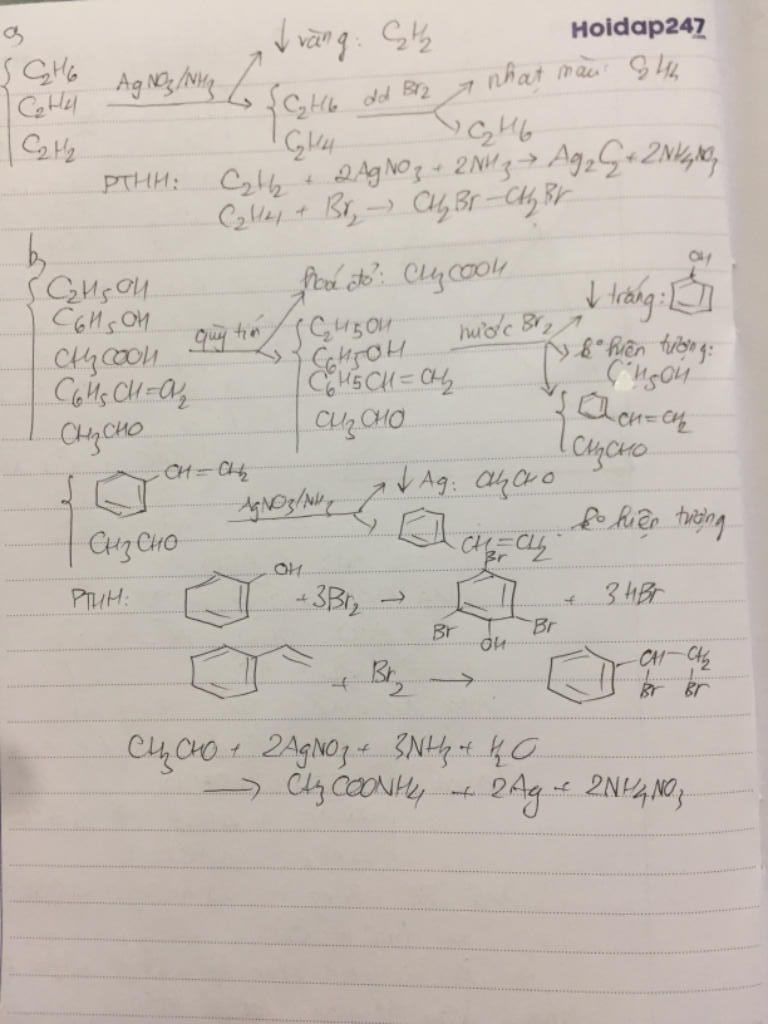 Hoidap247
a)
C2H6
C2H4
C2H2
AgNO3/NH3
↓ vàng: C2H2
C2H6
C2H4
dd Br2
nhạt màu: C2H4
C2H6
PTHH: C2H2 + 2AgNO3 + 2NH3 → Ag2C2 + 2NH4NO3
C2H4 + Br2 → CH2Br – CH2Br
b)
C2H5OH
C6H5OH
CH3COOH
C6H5CH=CH2
CH3CHO
quỳ tím
hoá đỏ: CH3COOH
C2H5OH
C6H5OH
C6H5CH=CH2
CH3CHO
nước Br2
↓ trắng:
OH
ko hiện tượng:
C2H5OH
CH=CH2
CH3CHO
CH=CH2
CH3CHO
AgNO3/NH3
↓ Ag: CH3CHO
CH=CH2: ko hiện tượng
PTHH:
OH
+ 3Br2 →
Br
Br
Br
OH
+ 3HBr
+ Br2 →
CH – CH2
Br Br
CH3CHO + 2AgNO3 + 3NH3 + H2O
→ CH3COONH4 + 2Ag + 2NH4NO3